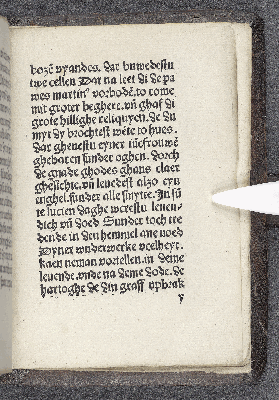 bozē vyandes. dar buwedestu
twe cellen Dar na leet di de pa
wes martin' vorbodē. to rome
mit groter beghere. vñ ghaf di
grote hillighe reliquyen. de du
myt dy brochtest wēte to hues.
dar ghenestu eyner iūcfrouwē
ghebaren sunder oghen. dorch
de gnade ghodes ghans claer
ghesichte. vñ leuedest also eyn
enghel. sunder alle sunde. In sū
te lucien daghe werestu leuen-
dich vñ doed Sunder toch tre
dende in den hemmel ane noed
Dyner wnderwerke veelheyt.
kaen neman vortellen. in deme
leuende. vnde na deme dode. de
hartoghe de din graff vpbrak